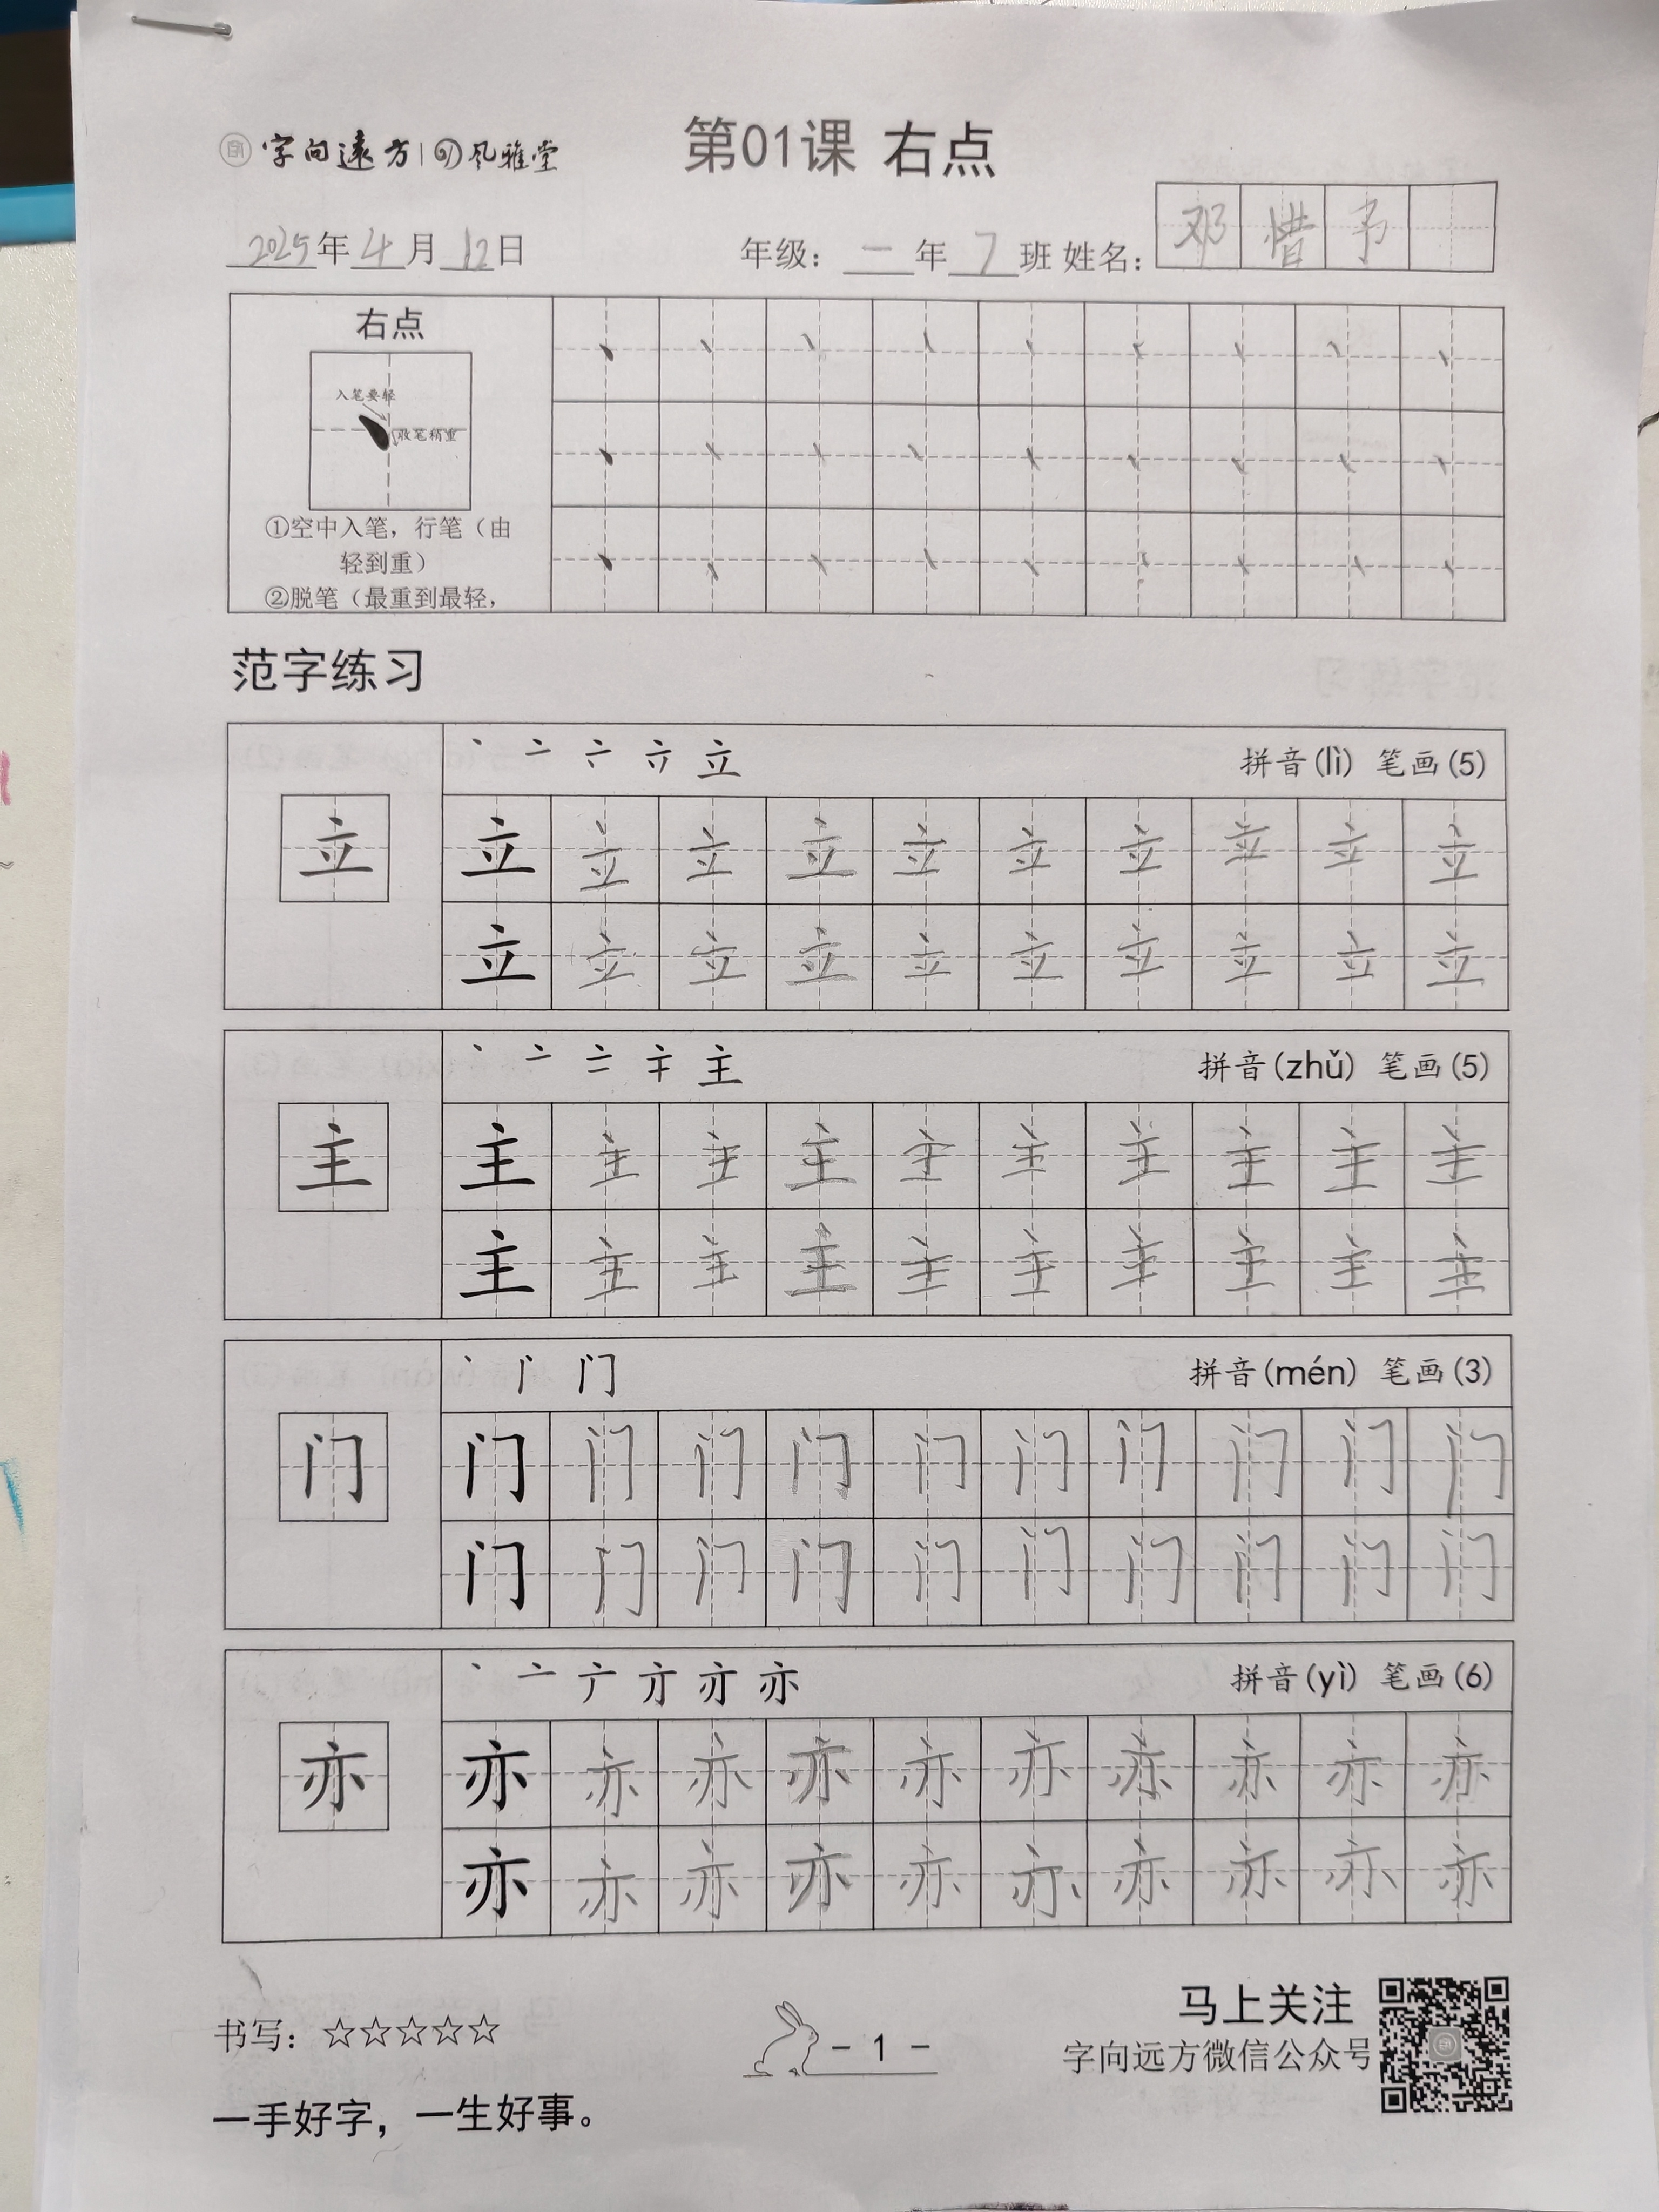 字向远方 风雅堂
第01课 右点
2025年4月12日 年级：一年7班 姓名：邓惜予
右点
入笔要轻
收笔稍重
①空中入笔，行笔（由
轻到重）
②脱笔（最重到最轻，
范字练习
立 拼音(lì) 笔画(5)
立 立 立 立 立 立 立 立 立 立 立
立 立 立 立 立 立 立 立 立 立
主 拼音(zhǔ) 笔画(5)
主 主 主 主 主 主 主 主 主 主 主
主 主 主 主 主 主 主 主 主 主
门 拼音(mén) 笔画(3)
门 门 门 门 门 门 门 门 门 门 门
门 门 门 门 门 门 门 门 门 门
亦 拼音(yì) 笔画(6)
亦 亦 亦 亦 亦 亦 亦 亦 亦 亦 亦
亦 亦 亦 亦 亦 亦 亦 亦 亦 亦
书写：☆☆☆☆☆
- 1 -
马上关注
字向远方微信公众号
一手好字，一生好事。